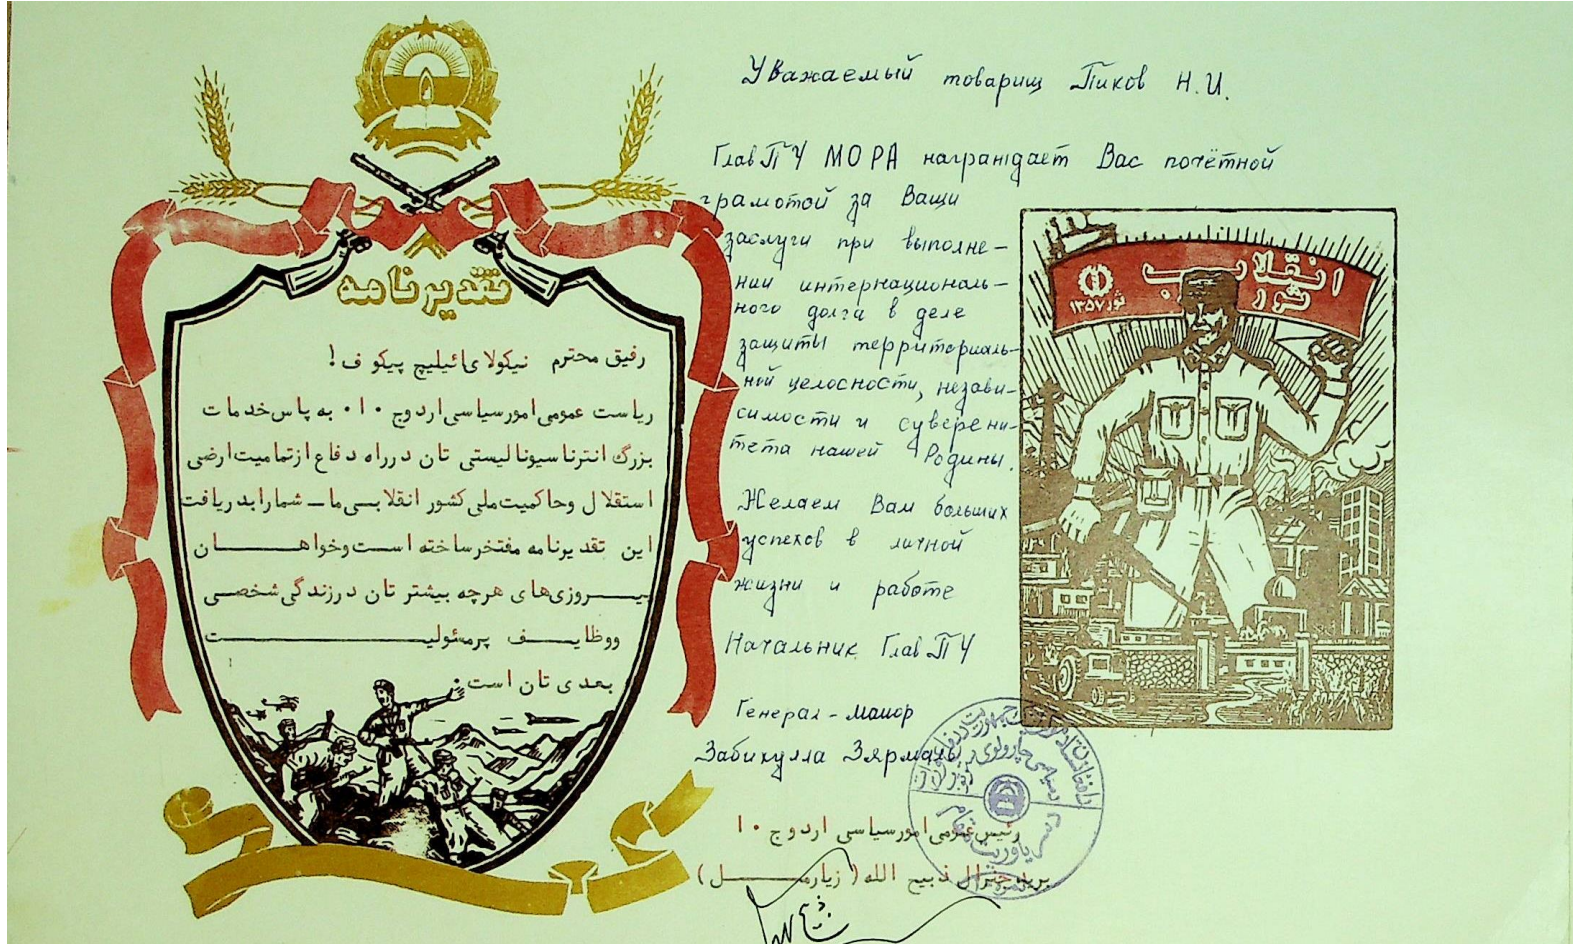 تقدیرنامه
رفیق محترم نیکولای ائیلیچ پیکوف!
ریاست عمومی امور سیاسی اردوج ۰ ا ۰ به پاس خدمات
بزرگ انترناسیونالیستی تان درراه دفاع ازتمامیت ارضی
استقلال وحاکمیت ملی کشور انقلابی ما ـ شمارا بدریافت
این تقدیرنامه مفتخر ساخته است وخواهان
پیروزی های هرچه بیشتر تان درزندگی شخصی
ووظایف پرمسئولیت
بعدی تان است.
Уважаемый товарищ Пиков Н.И.
ГлавПУ МО РА награждает Вас почётной
грамотой за Ваши
заслуги при выполне-
нии интернациональ-
ного долга в деле
защиты территориаль-
ной целосности, незави-
симости и суверени-
тета нашей Родины.
Желаем Вам больших
успехов в личной
жизни и работе
Начальник ГлавПУ
Генерал-майор
Забихулла Зярмаль
رئیس عمومی امور سیاسی اردوج ۰ ا
بریدجنرال ذبیح الله (زیارمل)
انقلاب
ثور
ثور ۱۳۵۷